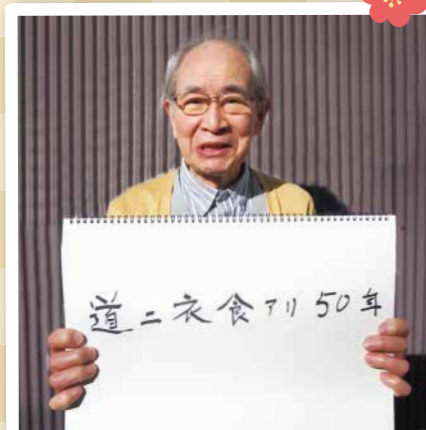 道ニ衣食アリ50年